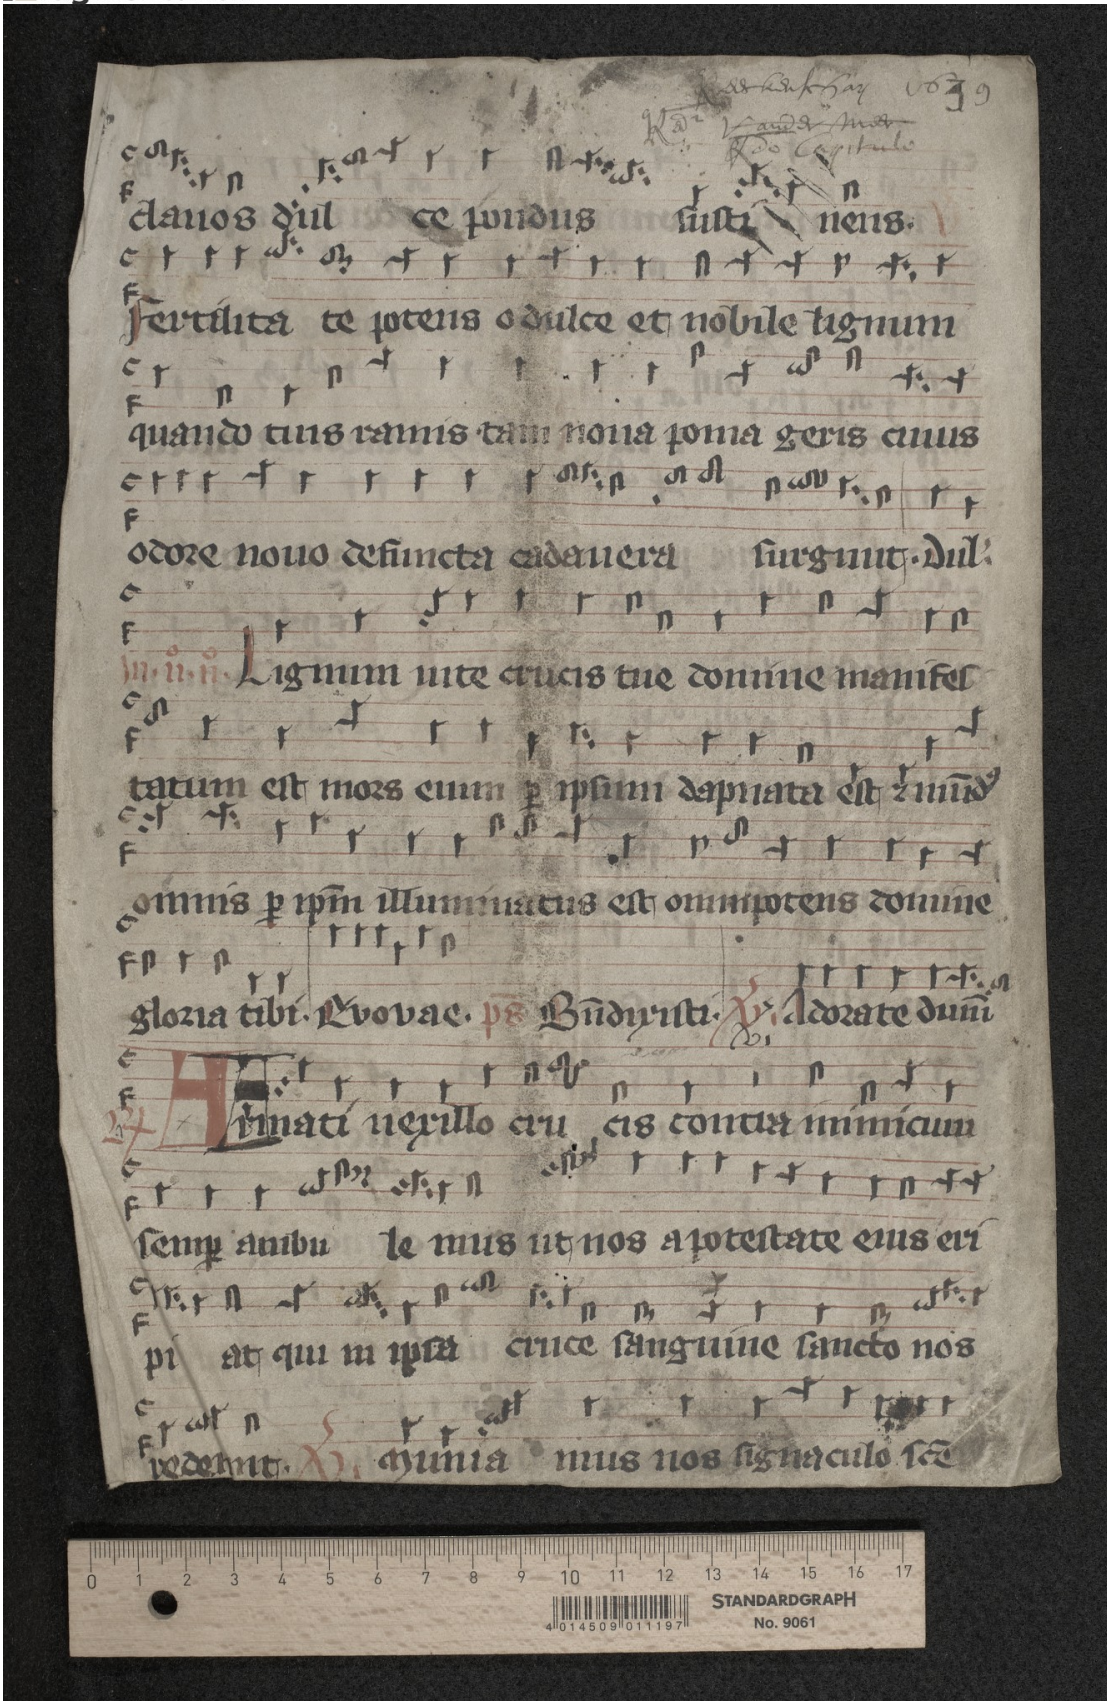 1639
Capitulo
clauos dul ce pondus susti nens.
Fertilita te potens o dulce et nobile lignum
quando tuis ramis tam noua poma geris cuius
odore nouo defuncta cadauera surgunt. Dul.
Lignum uite crucis tue domine manifes
tatum est mors enim ꝑ ipsum dapnata est ⁊ mūd᷒
omnis ꝑ ip̄m illuminatus est omnipotens domine
gloria tibi. Evovae. p̄s Bn̄dixisti. Adorate dum̄
Armati uexillo cru cis contra inimicum
semꝑ ambu le mus ut nos a potestate eius eri
pi at qui in ipsa cruce sanguine sancto nos
redemit. Munia mus nos signaculo sc̄e
0 1 2 3 4 5 6 7 8 9 10 11 12 13 14 15 16 17
STANDARDGRAPH
No. 9061
4 014509 011197